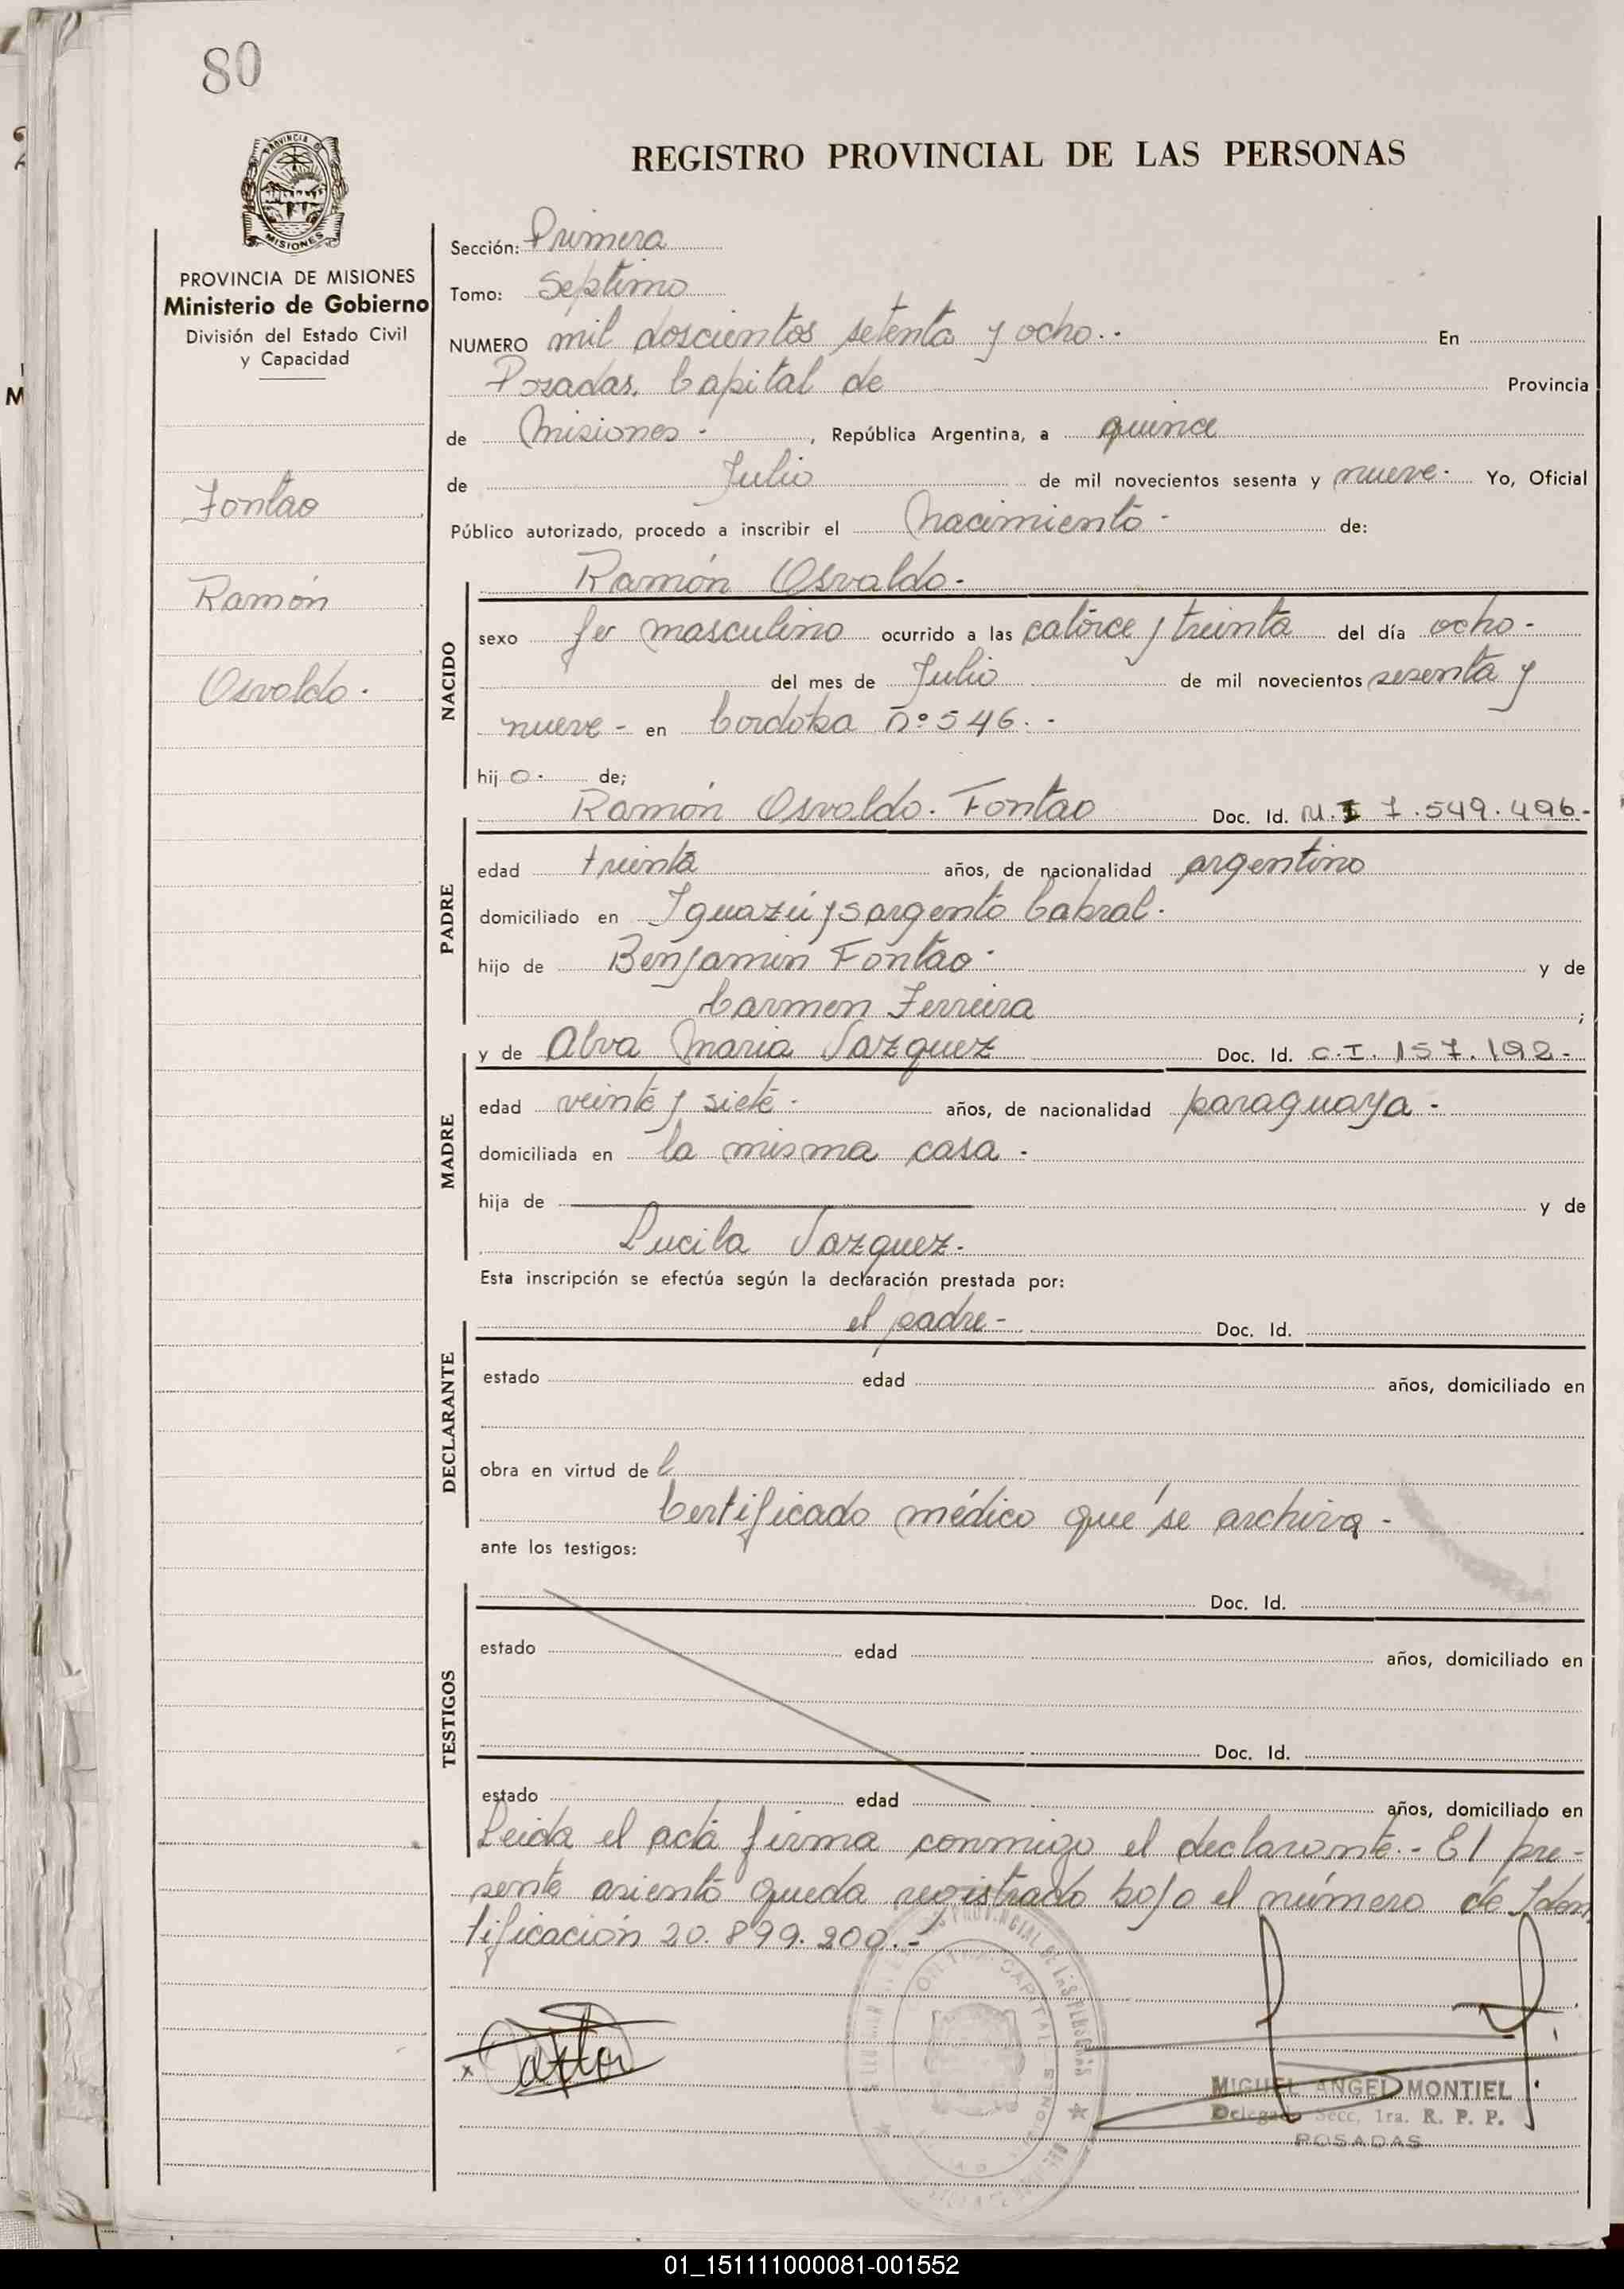 80
REGISTRO PROVINCIAL DE LAS PERSONAS
PROVINCIA DE MISIONES
Ministerio de Gobierno
División del Estado Civil
y Capacidad
Fontao
Ramón
Osvaldo.
Sección: Primera
Tomo: Septimo
NUMERO mil doscientos setenta y ocho.- En
Posadas, Capital de Provincia
de Misiones - , República Argentina, a quince
de Julio de mil novecientos sesenta y nueve- Yo, Oficial
Público autorizado, procedo a inscribir el Nacimiento - de:
Ramón Osvaldo-
NACIDO
sexo masculino ocurrido a las catorce y treinta del día ocho -
del mes de Julio de mil novecientos sesenta y
nueve - en Cordoba nº 546. -
hij o. de;
Ramón Osvaldo. Fontao Doc. Id. M.I 7.549.496.-
PADRE
edad treinta años, de nacionalidad argentino
domiciliado en Iguazú y Sargento Cabral.
hijo de Benjamin Fontao - y de
Carmen Ferreira ;
y de Alva Maria Vazquez Doc. Id. C.I. 157.192-
MADRE
edad veinte y siete - años, de nacionalidad paraguaya -
domiciliada en la misma casa -
hija de y de
Lucila Vazquez.
Esta inscripción se efectúa según la declaración prestada por:
el padre - Doc. Id.
DECLARANTE
estado edad años, domiciliado en
obra en virtud de l
Certificado médico que se archiva -
ante los testigos:
Doc. Id.
TESTIGOS
estado edad años, domiciliado en
Doc. Id.
estado edad años, domiciliado en
Leida el acta firma conmigo el declarante.- El pre-
sente asiento queda registrado bajo el número de Iden
tificación 20.899.200.-
MIGUEL ANGEL MONTIEL
Delegado Secc. 1ra. R. P. P.
POSADAS
01_151111000081-001552